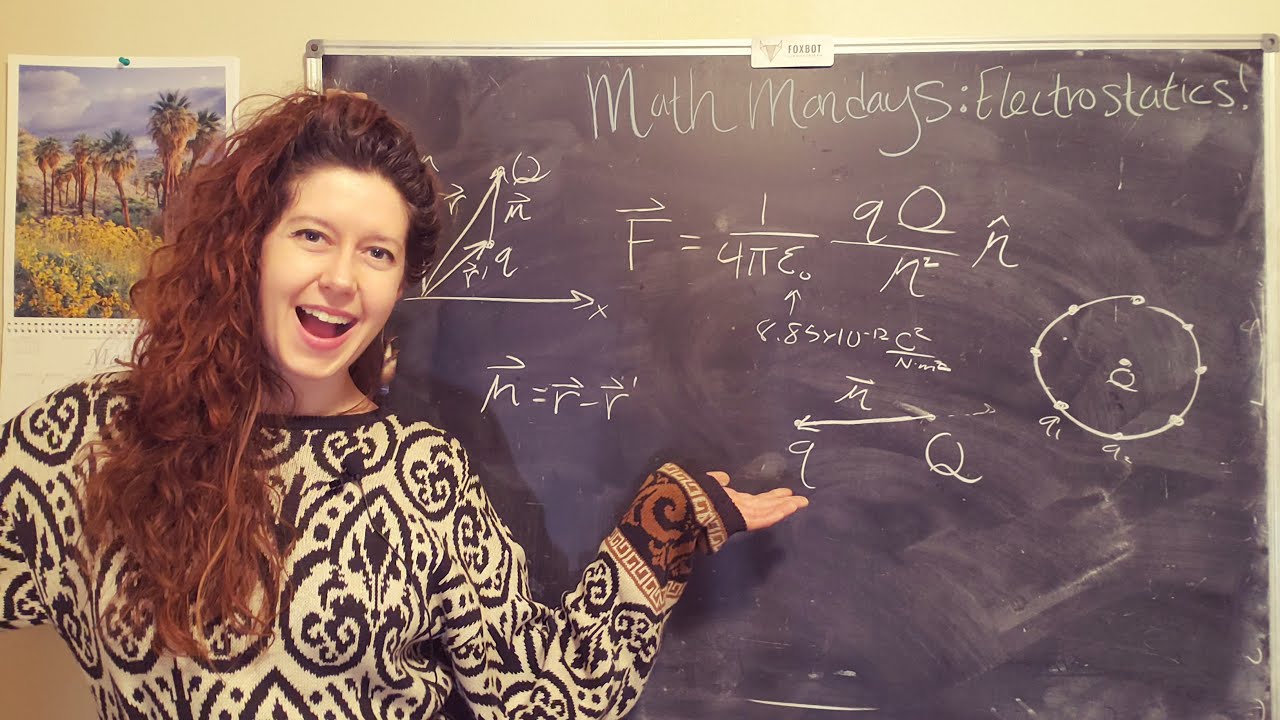 FOXBOT
Math Mondays: Electrostatics!
Q
r⃗
𝓇⃗
r⃗'
q
x
F⃗ = 1/4πε₀ qQ/𝓇² 𝓇̂
8.85x10⁻¹² C²/N·m²
𝓇⃗ = r⃗ - r⃗'
𝓇⃗
q
Q
Q
q₁
q₂